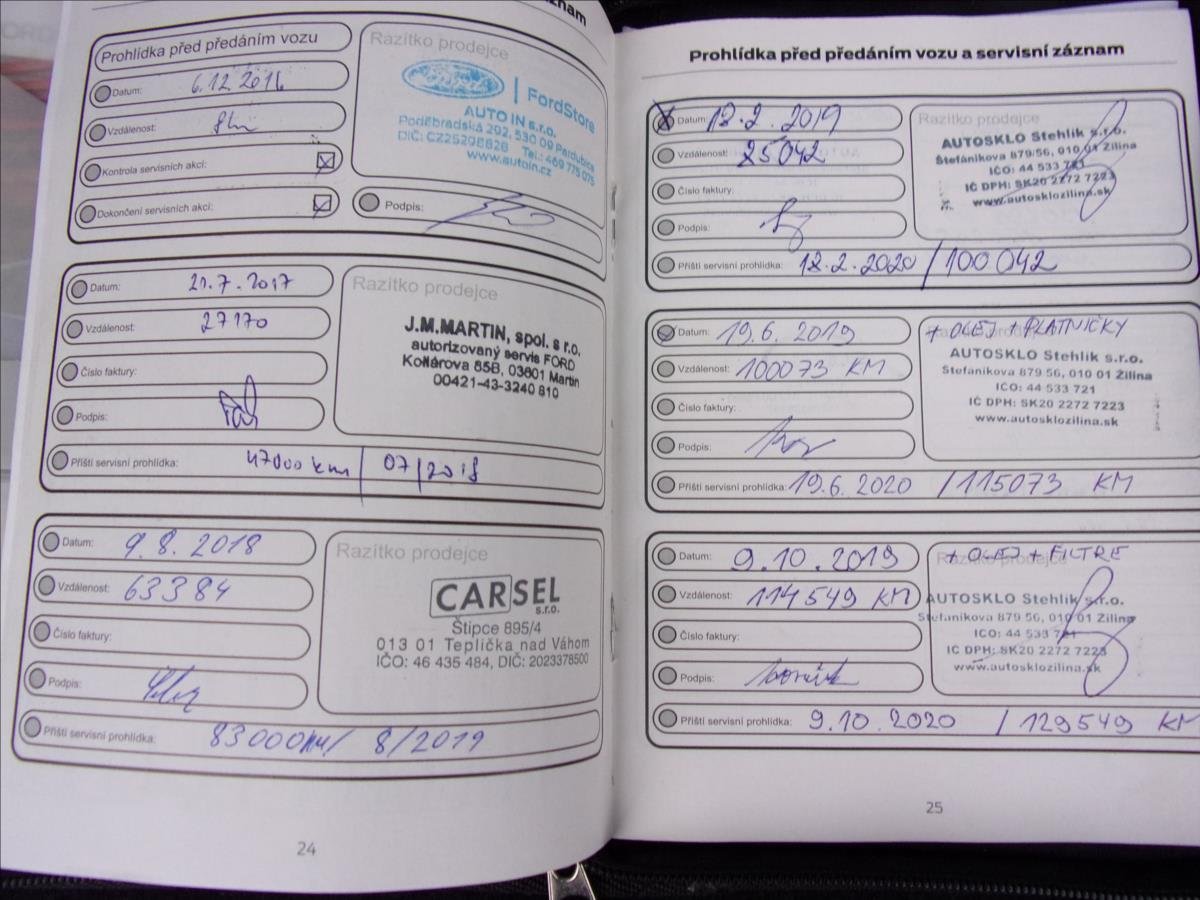 znam
Prohlídka před předáním vozu
Datum: 6.12 2016
Vzdálenost:
Kontrola servisních akcí:
Dokončení servisních akcí:
Razítko prodejce
Ford
FordStore
AUTO IN s.r.o.
Poděbradská 292, 530 09 Pardubice
DIČ: CZ25298828 Tel.: 469 775 075
www.autoin.cz
Podpis:
Datum: 21.7.2017
Vzdálenost: 27170
Číslo faktury:
Podpis:
Příští servisní prohlídka: 47000 km / 07/2018
Razítko prodejce
J.M.MARTIN, spol. s r.o.
autorizovaný servis FORD
Kollárova 85B, 03601 Martin
00421-43-3240 810
Datum: 9.8.2018
Vzdálenost: 63384
Číslo faktury:
Podpis:
Příští servisní prohlídka: 83000KM/ 8/2019
Razítko prodejce
CARSEL
s.r.o.
Štipce 895/4
013 01 Teplička nad Váhom
IČO: 46 435 484, DIČ: 2023378500
24
Prohlídka před předáním vozu a servisní záznam
Datum: 18.2.2019
Vzdálenost: 25042
Číslo faktury:
Podpis:
Příští servisní prohlídka: 18.2.2020 /100042
Razítko prodejce
AUTOSKLO Stehlík s.r.o.
Štefánikova 879/56, 010 01 Žilina
IČO: 44 533 721
IČ DPH: SK20 2272 7223
www.autosklozilina.sk
Datum: 19.6.2019
Vzdálenost: 100073 KM
Číslo faktury:
Podpis:
Příští servisní prohlídka: 19.6.2020 /115073 KM
+ OLEJ + PLATNIČKY
AUTOSKLO Stehlík s.r.o.
Štefánikova 879 56, 010 01 Žilina
IČO: 44 533 721
IČ DPH: SK20 2272 7223
www.autosklozilina.sk
Datum: 9.10.2019
Vzdálenost: 114549 KM
Číslo faktury:
Podpis:
Příští servisní prohlídka: 9.10.2020 /129549 KM
+ OLEJ + FILTRE
Razítko prodejce
AUTOSKLO Stehlík s.r.o.
Štefánikova 879 56, 010 01 Žilina
IČO: 44 533 721
IČ DPH: SK20 2272 7223
www.autosklozilina.sk
25